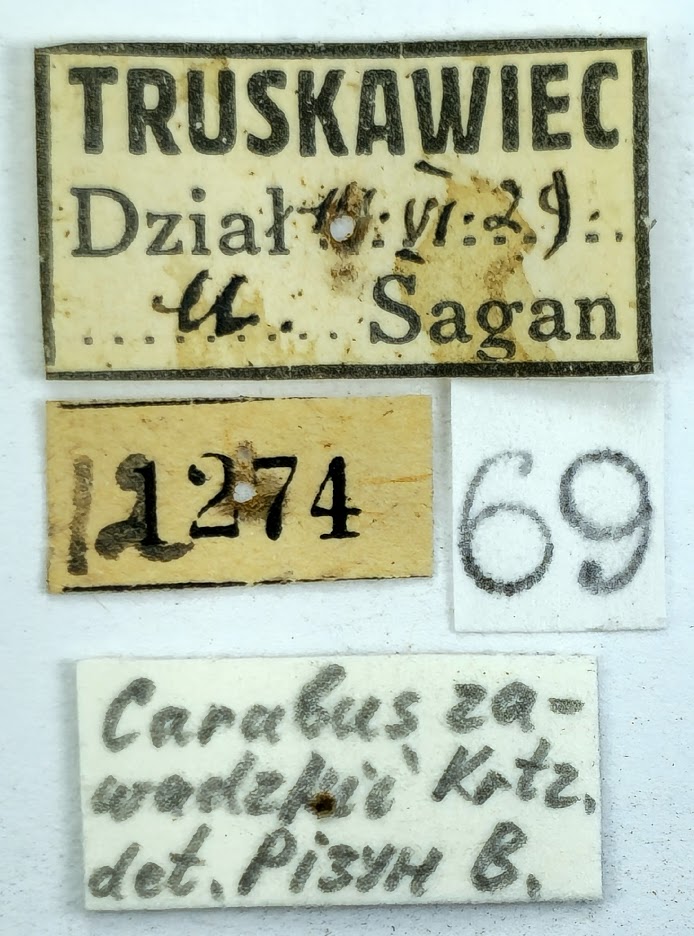 TRUSKAWIEC
Dział VI. 29
Sagan
12 1274
69
Carabus za-
wadzkii Krtz.
det. Різун В.